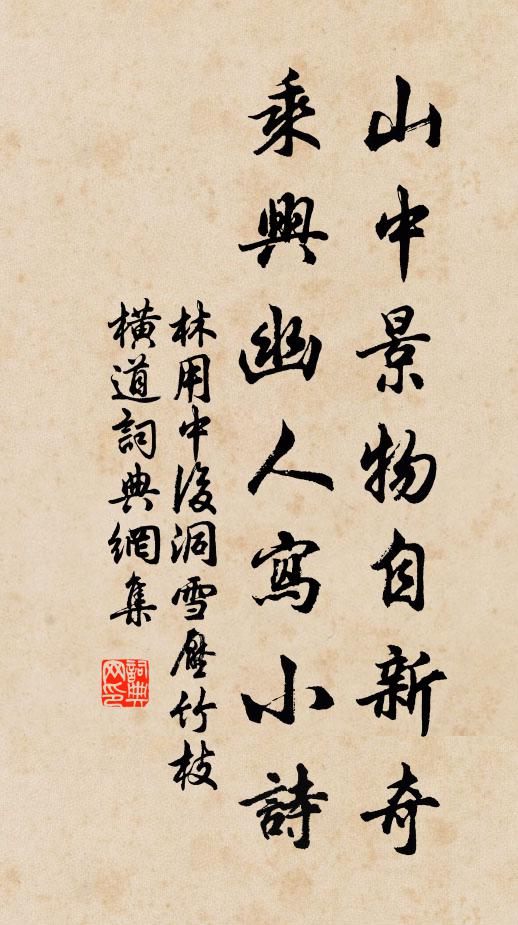 山中景物自新奇
乘興幽人寫小詩
林用中後洞雪壓竹枝
橫道詞典網集
詞典網印